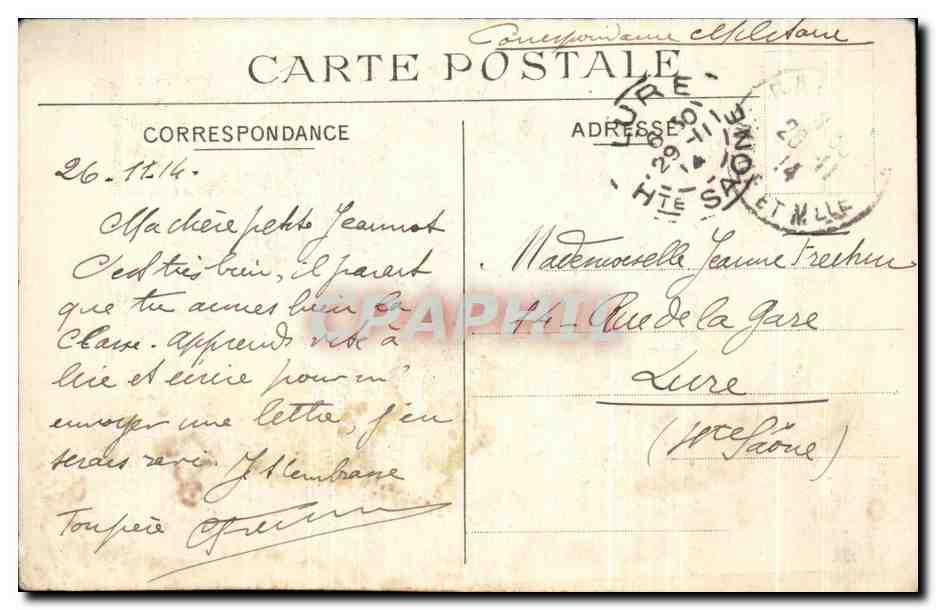 Correspondance Militaire
CARTE POSTALE
CORRESPONDANCE
ADRESSE
LURE
6 30
29 - 11
14
HTE SAONE
28 - 11
14
ET M LLE
26.11.14.
Ma chère petite Jeannot
C'est très bien, il parait
que tu aimes bien la
Classe. Apprends vite à
lire et écrire pour m'
envoyer une lettre, j'en
serais ravi. Je t'embrasse
Ton père
Mademoiselle Jeanne
14 - Rue de la Gare
Lure
(Hte Saône)
CPAPHIL